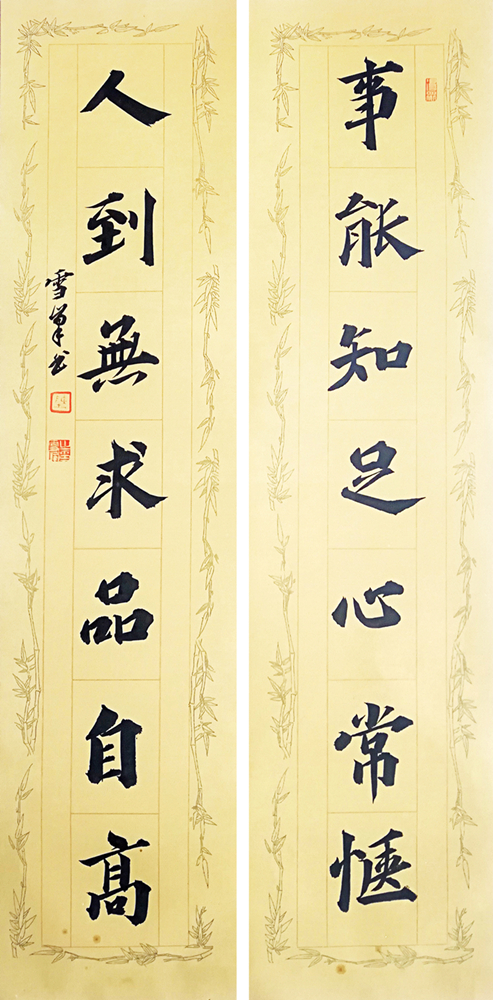 事能知足心常愜
人到無求品自高
雪 书